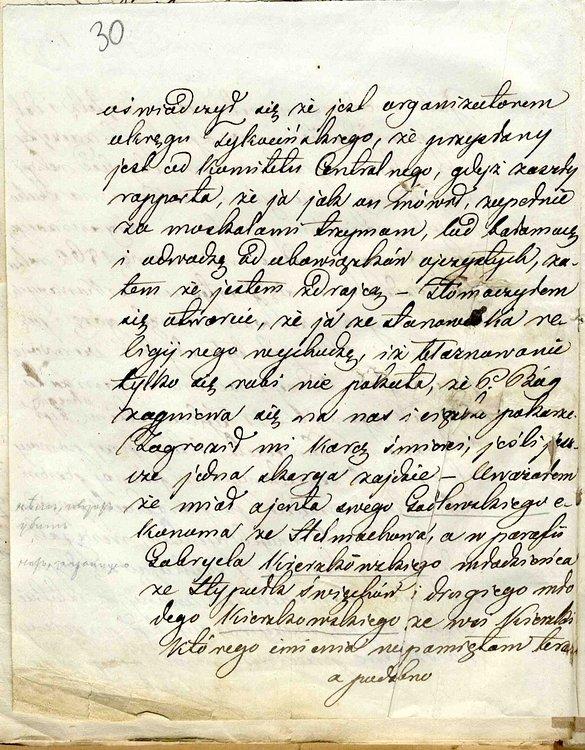 30
oświadczył się że jest organizatorem
okręgu Tykocińskiego, że przysłany
jest od Komitetu Centralnego, gdyż zaszły
rapporta, że ja jak on mówił, zupełnie
za moskalami trzymam, lud bałamucę
i odwodzę od obowiązków ojczystych, za-
tem że jestem zdrajcą – Tłomaczyłem
się otwarcie, że ja ze stanowiska re-
ligijnego wychodzę, iż błaznowanie
tylko się robi nie pokuta, że P. Bóg
zagniewa się na nas i ciężko pokarze
Zagroził mi karą śmierci, jeśli jesz-
cze jedna skarga zajdzie – Uważałem
że miał ajenta swego Godlewskiego e-
konoma ze Stelmachowa, a w parafii
Gabryela Kierzkowskiego młodzieńca
ze Stypułk Święchów i drugiego mło
dego Kierzkowskiego ze wsi Kierzki
którego imienia niepamiętam teraz
a podobno